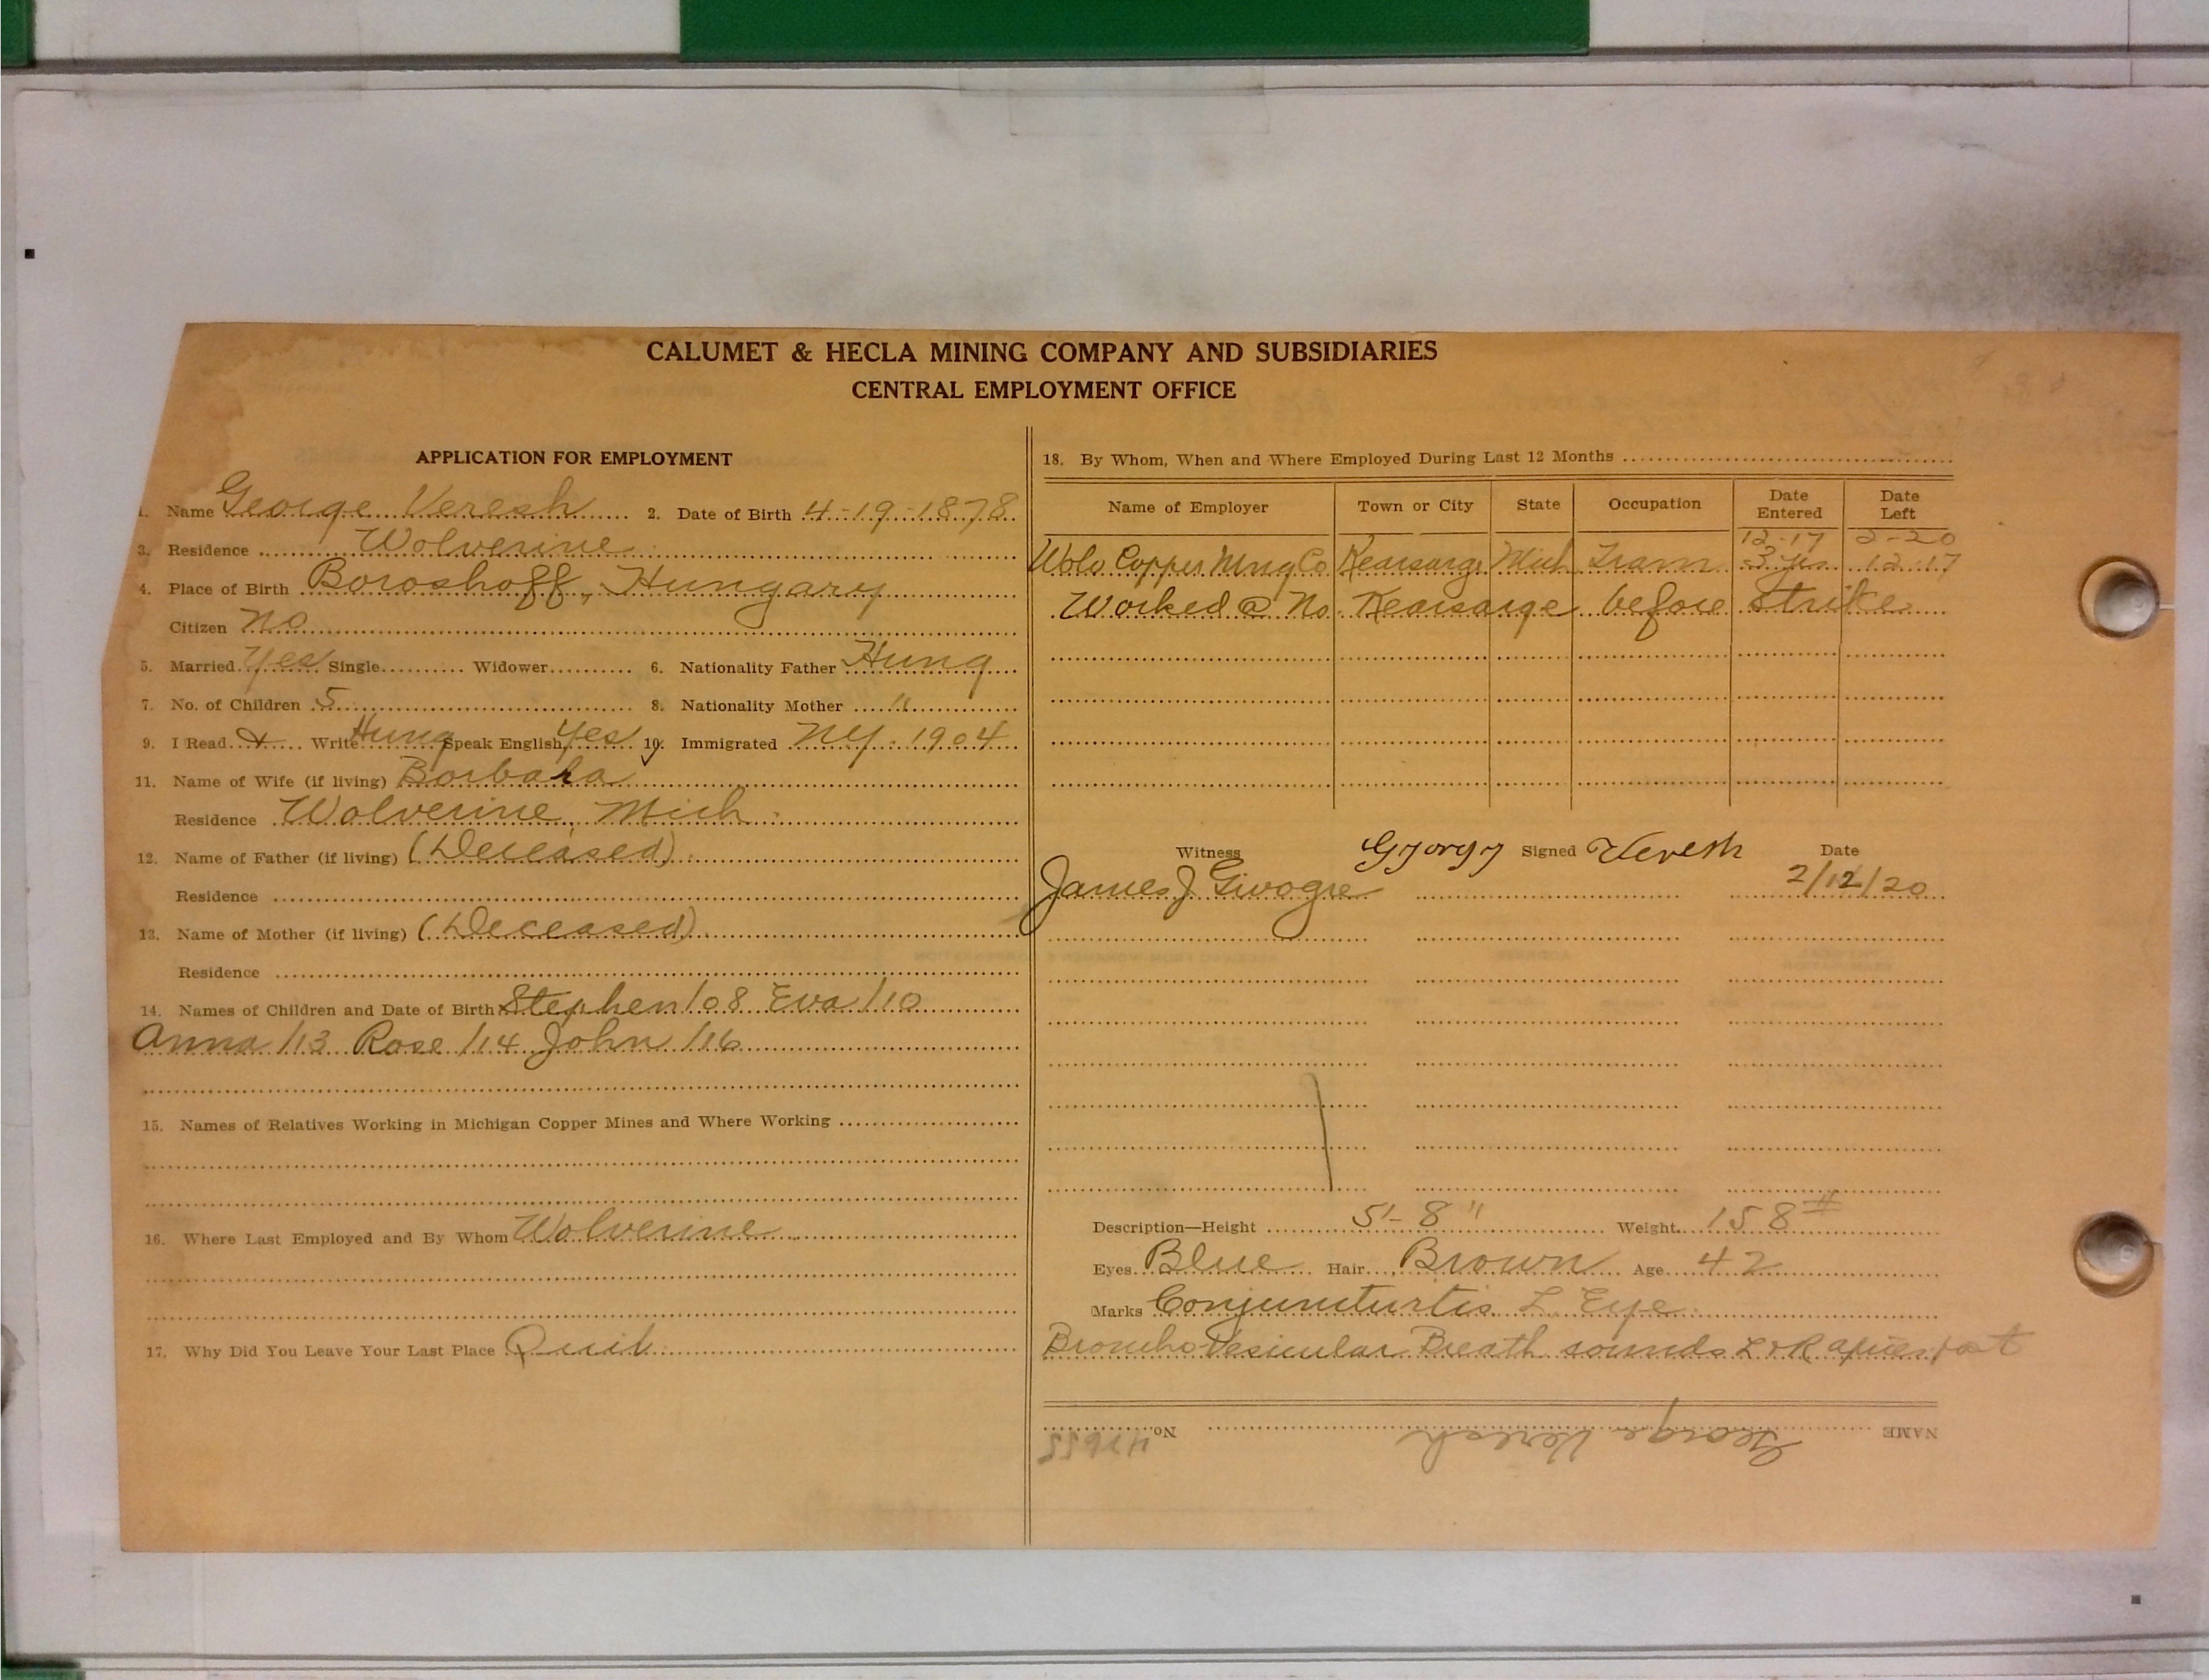 CALUMET & HECLA MINING COMPANY AND SUBSIDIARIES
CENTRAL EMPLOYMENT OFFICE
APPLICATION FOR EMPLOYMENT
1. Name George Veresh 2. Date of Birth 4-19-1878
3. Residence Wolverine
4. Place of Birth Boroshoff, Hungary
Citizen No
5. Married Yes Single Widower 6. Nationality Father Hung
7. No. of Children 5 8. Nationality Mother "
9. I Read & Write Hung Speak English Yes 10. Immigrated NY. 1904
11. Name of Wife (if living) Borbara
Residence Wolverine, Mich.
12. Name of Father (if living) (Deceased)
Residence
13. Name of Mother (if living) (Deceased)
Residence
14. Names of Children and Date of Birth Stephen/08 Eva/10
Anna/13 Rose/14 John/16
15. Names of Relatives Working in Michigan Copper Mines and Where Working
16. Where Last Employed and By Whom Wolverine
17. Why Did You Leave Your Last Place Quit
18. By Whom, When and Where Employed During Last 12 Months
Name of Employer Town or City State Occupation Date Entered Date Left
12-17 2-20
Wolv Copper Mng Co Kearsarge Mich Tram 3 yrs 12-17
Worked @ No. Kearsarge before strike
Witness Gyorgy Signed Veresh Date
James J. 2/12/20
Description—Height 5'-8" Weight 158#
Eyes Blue Hair Brown Age 42
Marks Conjuncturtis L. Eye.
Broncho Vesicular Breath sounds L & R apices post
NAME George Veresh No.